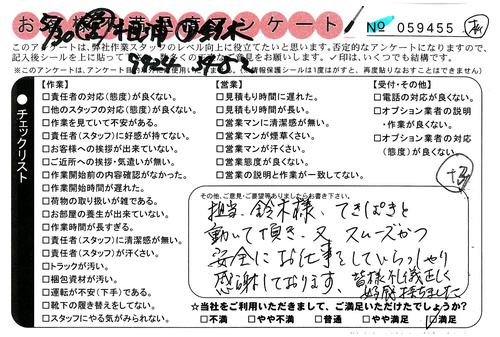 お客様不満足度アンケート
No 059455
このアンケートは、弊社作業スタッフのレベル向上に役立てたいと思います。否定的なアンケートになりますので、
記入後シールを上に貼って
お願いします。✓印は、いくつでも結構です。
※このアンケートは、アンケート目的
(情報保護シールは1度はがすと、再度貼りなおすことはできません)
チェックリスト
【作業】
□責任者の対応(態度)が良くない。
□他のスタッフの対応(態度)が良くない。
□作業を見ていて不安がある。
□責任者(スタッフ)に好感が持てない。
□お客様への挨拶が出来ていない。
□ご近所への挨拶・気遣いが無い。
□作業開始前の内容確認がなかった。
□作業開始時間が遅れた。
□荷物の取り扱いが雑である。
□お部屋の養生が出来ていない。
□作業時間が長すぎる。
□責任者(スタッフ)に清潔感が無い。
□責任者(スタッフ)が汗くさい。
□トラックが汚い。
□梱包資材が汚い。
□運転が不安(下手)である。
□靴下の履き替えをしてない。
□スタッフにやる気がみられない。
【営業】
□見積もり時間に遅れた。
□見積もり時間が長い。
□営業マンに清潔感が無い。
□営業マンが煙草くさい。
□営業マンが汗くさい。
□営業態度が良くない。
□営業の説明と作業が一致してない。
【受付・その他】
□電話の対応が良くない。
□オプション業者の説明
・作業が良くない。
□オプション業者の対応
(態度)が良くない。
その他、ご意見・ご要望等ありましたらお書き下さい。
担当、鈴木様、てきぱきと
動いて頂き、又、スムーズかつ
安全にお仕事をしていらっしゃり
感謝しております、皆様礼儀正しく
好感持ちました
☆当社をご利用いただきまして、ご満足いただけたでしょうか?
□不満 □やや不満 □普通 □やや満足 ☑満足